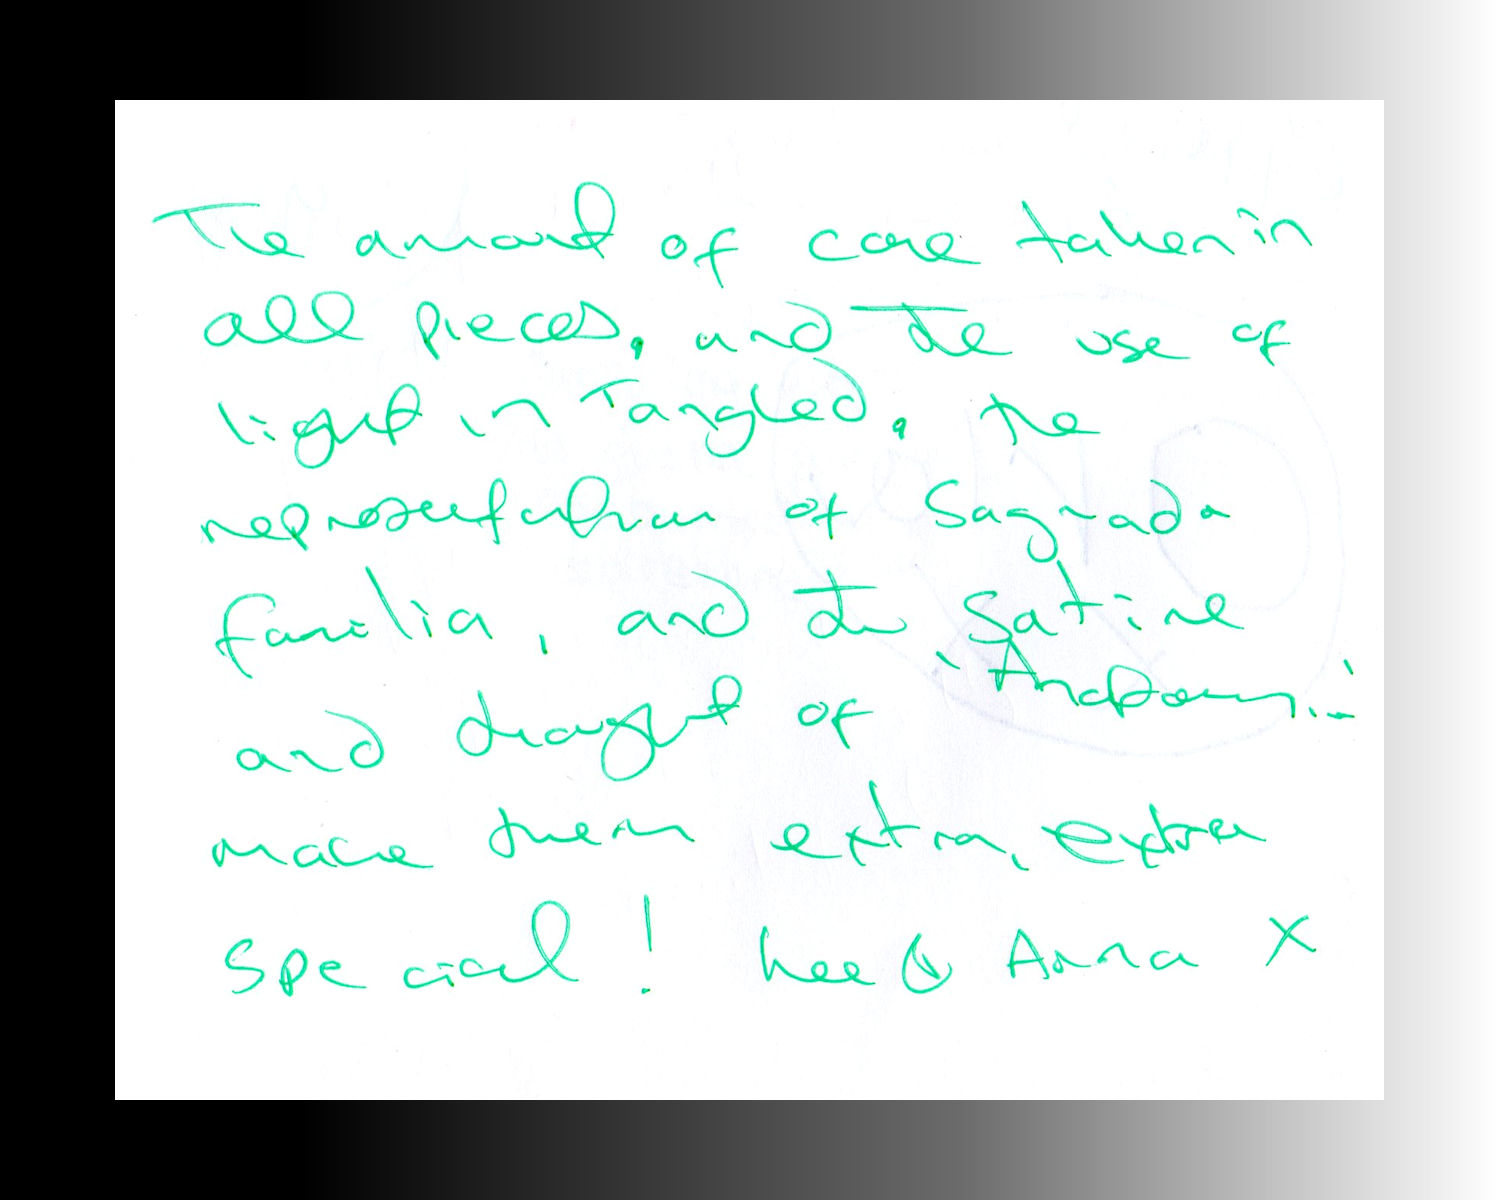 The amount of care taken in
all pieces, and the use of
light in Tangled, the
representation of Sagrada
familia, and the satire
and thought of 'Anatomy...'
make them extra, extra
special! Lee & Anna X